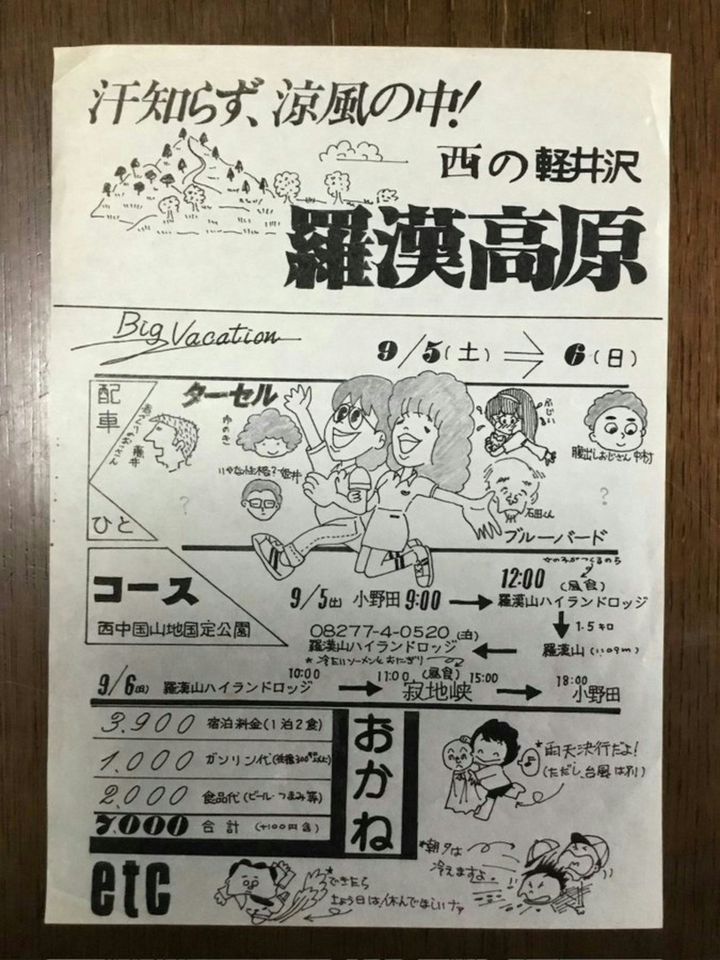 汗知らず、涼風の中!
西の軽井沢
羅漢高原
Big Vacation
9/5(土)⇒6(日)
配車
ひと
ターセル
藤井
ゆのき
いやな性格?桜井
?
ふじい
腹出しおじさん 中村
石田くん
?
ブルーバード
コース
西中国山地国定公園
9/5(土) 小野田 9:00 → 12:00 (昼食) 羅漢山ハイランドロッジ
↓ 1.5キロ
羅漢山(1109m)
← 08277-4-0520(泊)
羅漢山ハイランドロッジ
*冷たいソーメンとおにぎり
9/6(日) 羅漢山ハイランドロッジ 10:00 → 11:00 (昼食) 寂地峡 15:00 → 18:00 小野田
おかね
3,900 宿泊料金(1泊2食)
1,000 ガソリン代
2,000 食品代(ビール・つまみ等)
7,000 合計 (+100円含)
*雨天決行だよ!
(ただし、台風は別)
*朝夕は
冷えますよ。
etc
*できたら
土よう日は休んでほしいナァ